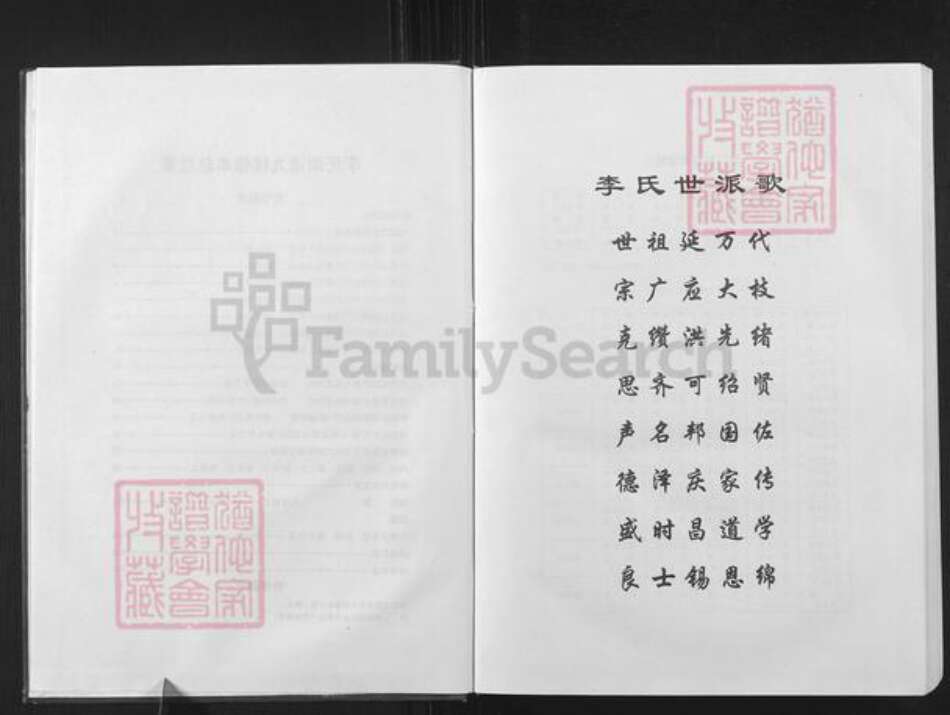 李氏世派歌
世祖延万代
宗广应大枝
克缵洪先绪
思齐可绍贤
声名邦国佐
德泽庆家传
盛时昌道学
良士锡恩绵
FamilySearch
猶他家
譜學會
收藏
猶他家
譜學會
收藏